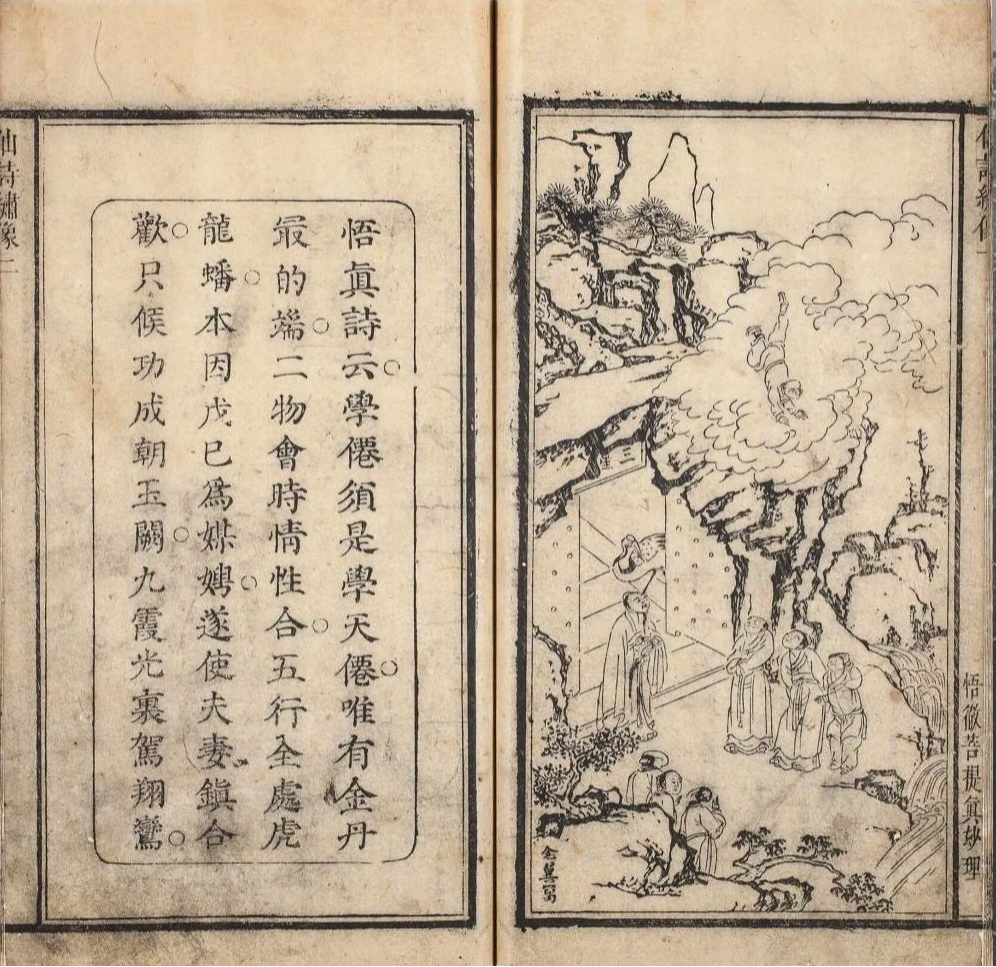 仙詩繡像一
悟徹菩提眞妙理
悟眞詩云。學僊須是學天僊。唯有金丹
最的端。二物會時情性合。五行全處虎
龍蟠。本因戊已爲媒娉。遂使夫妻鎮合
歡。只候功成朝玉闕。九霞光裏駕翔鸞。
仙詩繡像二